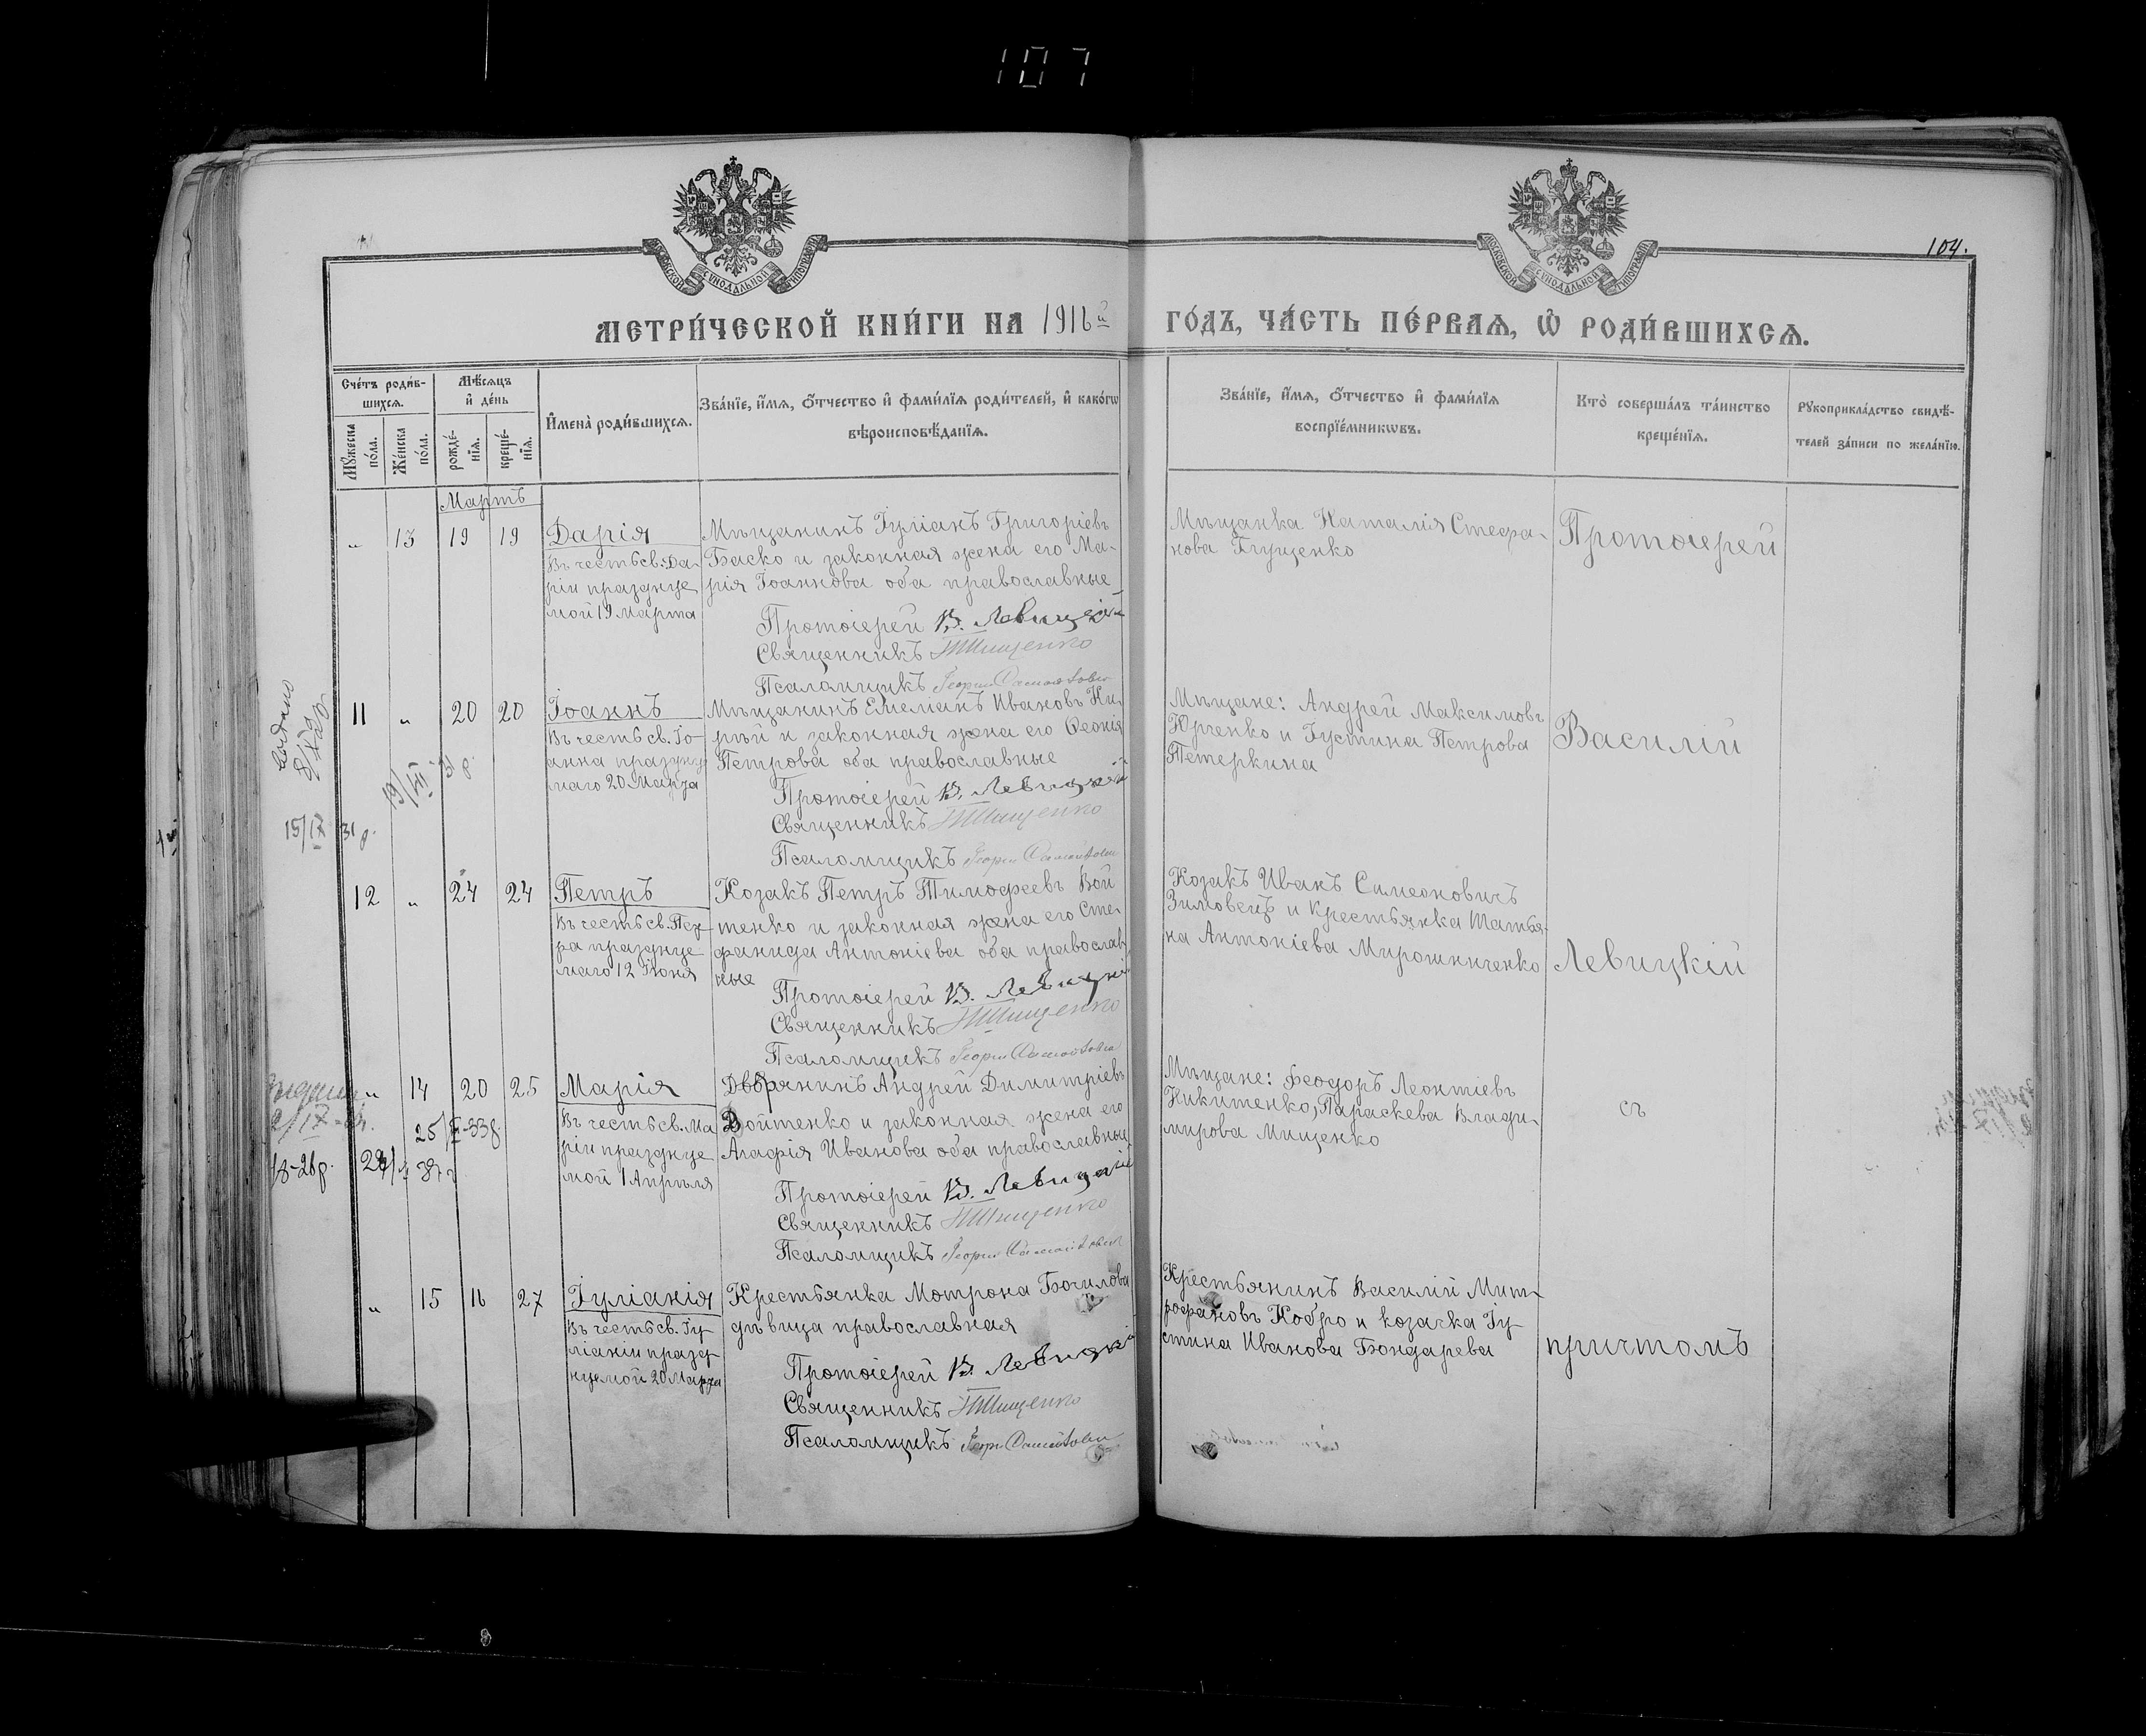 107
104.
МОСКОВСКОЙ СѴНОДАЛЬНОЙ ТИПОГРАФІИ
МОСКОВСКОЙ СѴНОДАЛЬНОЙ ТИПОГРАФІИ
МЕТРИ́ЧЕСКОЙ КНИ́ГИ НА 1916й ГО́ДЪ, ЧА́СТЬ ПЕ́РВАѦ, Ѡ҆ РОДИ́ВШИХСѦ.
Сче́тъ роди́в-
шихсѧ.
Мѣ́сѧцъ
и҆ де́нь
Мꙋ́жеска
по́ла.
Же́нска
по́ла.
рожде́-
нїѧ.
креще́-
нїѧ.
И҆мена̀ роди́вшихсѧ.
Зва́нїе, и҆́мѧ, ѻ҆́тчество и҆ фами́лїѧ роди́телей, и҆ како́гѡ
вѣроисповѣ́данїѧ.
Зва́нїе, и҆́мѧ, ѻ҆́тчество и҆ фами́лїѧ
воспрїе́мникѡвъ.
Кто̀ соверша́лъ та́инство
креще́нїѧ.
Рꙋкоприкла́дство свидѣ́-
телей за́писи по жела́нїю.
Мартъ
„ 13 19 19
Дарія
Въ честь св. Да-
ріи празднуе
мой 19 Марта
Мѣщанинъ Іуліанъ Григоріевъ
Баско и законная жена его Ма-
рія Іоаннова оба православные
Протоіерей В. Левицкій
Священникъ Тищенко
Псаломщикъ Георгій
Мѣщанка Наталія Стефа-
нова Глущенко
Протоіерей
11 „ 20 20
Іоаннъ
Въ честь св. Іо-
анна праздну
маго 20 Марта
Мѣщанинъ Емеліанъ Ивановъ Ки-
рѣй и законная жена его Ѳеонія
Петрова оба православные
Протоіерей В. Левицкій
Священникъ Тищенко
Псаломщикъ Георгій
Мѣщане: Андрей Максимовъ
Юрченко и Іустина Петрова
Петеркина
Василій
15/IX 31 г.
12 „ 24 24
Петръ
Въ честь св. Пет-
ра празднуе
маго 12 Іюня
Козакъ Петръ Тимофеевъ Вой
тенко и законная жена его Сте-
фанида Антоніева оба православ-
ные
Протоіерей В. Левицкій
Священникъ Тищенко
Псаломщикъ Георгій
Козакъ Иванъ Симеоновичъ
Зимовецъ и крестьянка Татья-
на Антоніева Мирошниченко
Левицкій
„ 14 20 25
Марія
Въ честь св. Ма
ріи празднуе
мой 1 Апрѣля
Дворянинъ Андрей Димитріевъ
Войтенко и законная жена его
Агафія Иванова оба православные
Протоіерей В. Левицкій
Священникъ Тищенко
Псаломщикъ Георгій
Мѣщане: Феодоръ Леонтіевъ
Никитенко, Параскева Влади-
мирова Мищенко
съ
„ 15 16 27
Іуліанія
Въ честь св. Іу-
ліаніи празд-
нуемой 20 Марта
Крестьянка Мотрона Богилова
дѣвица православная
Протоіерей В. Левицкій
Священникъ Тищенко
Псаломщикъ Георгій
Крестьянинъ Василій Мит-
рофановъ Кобро и козачка Іу-
стина Иванова Бондарева
причтомъ